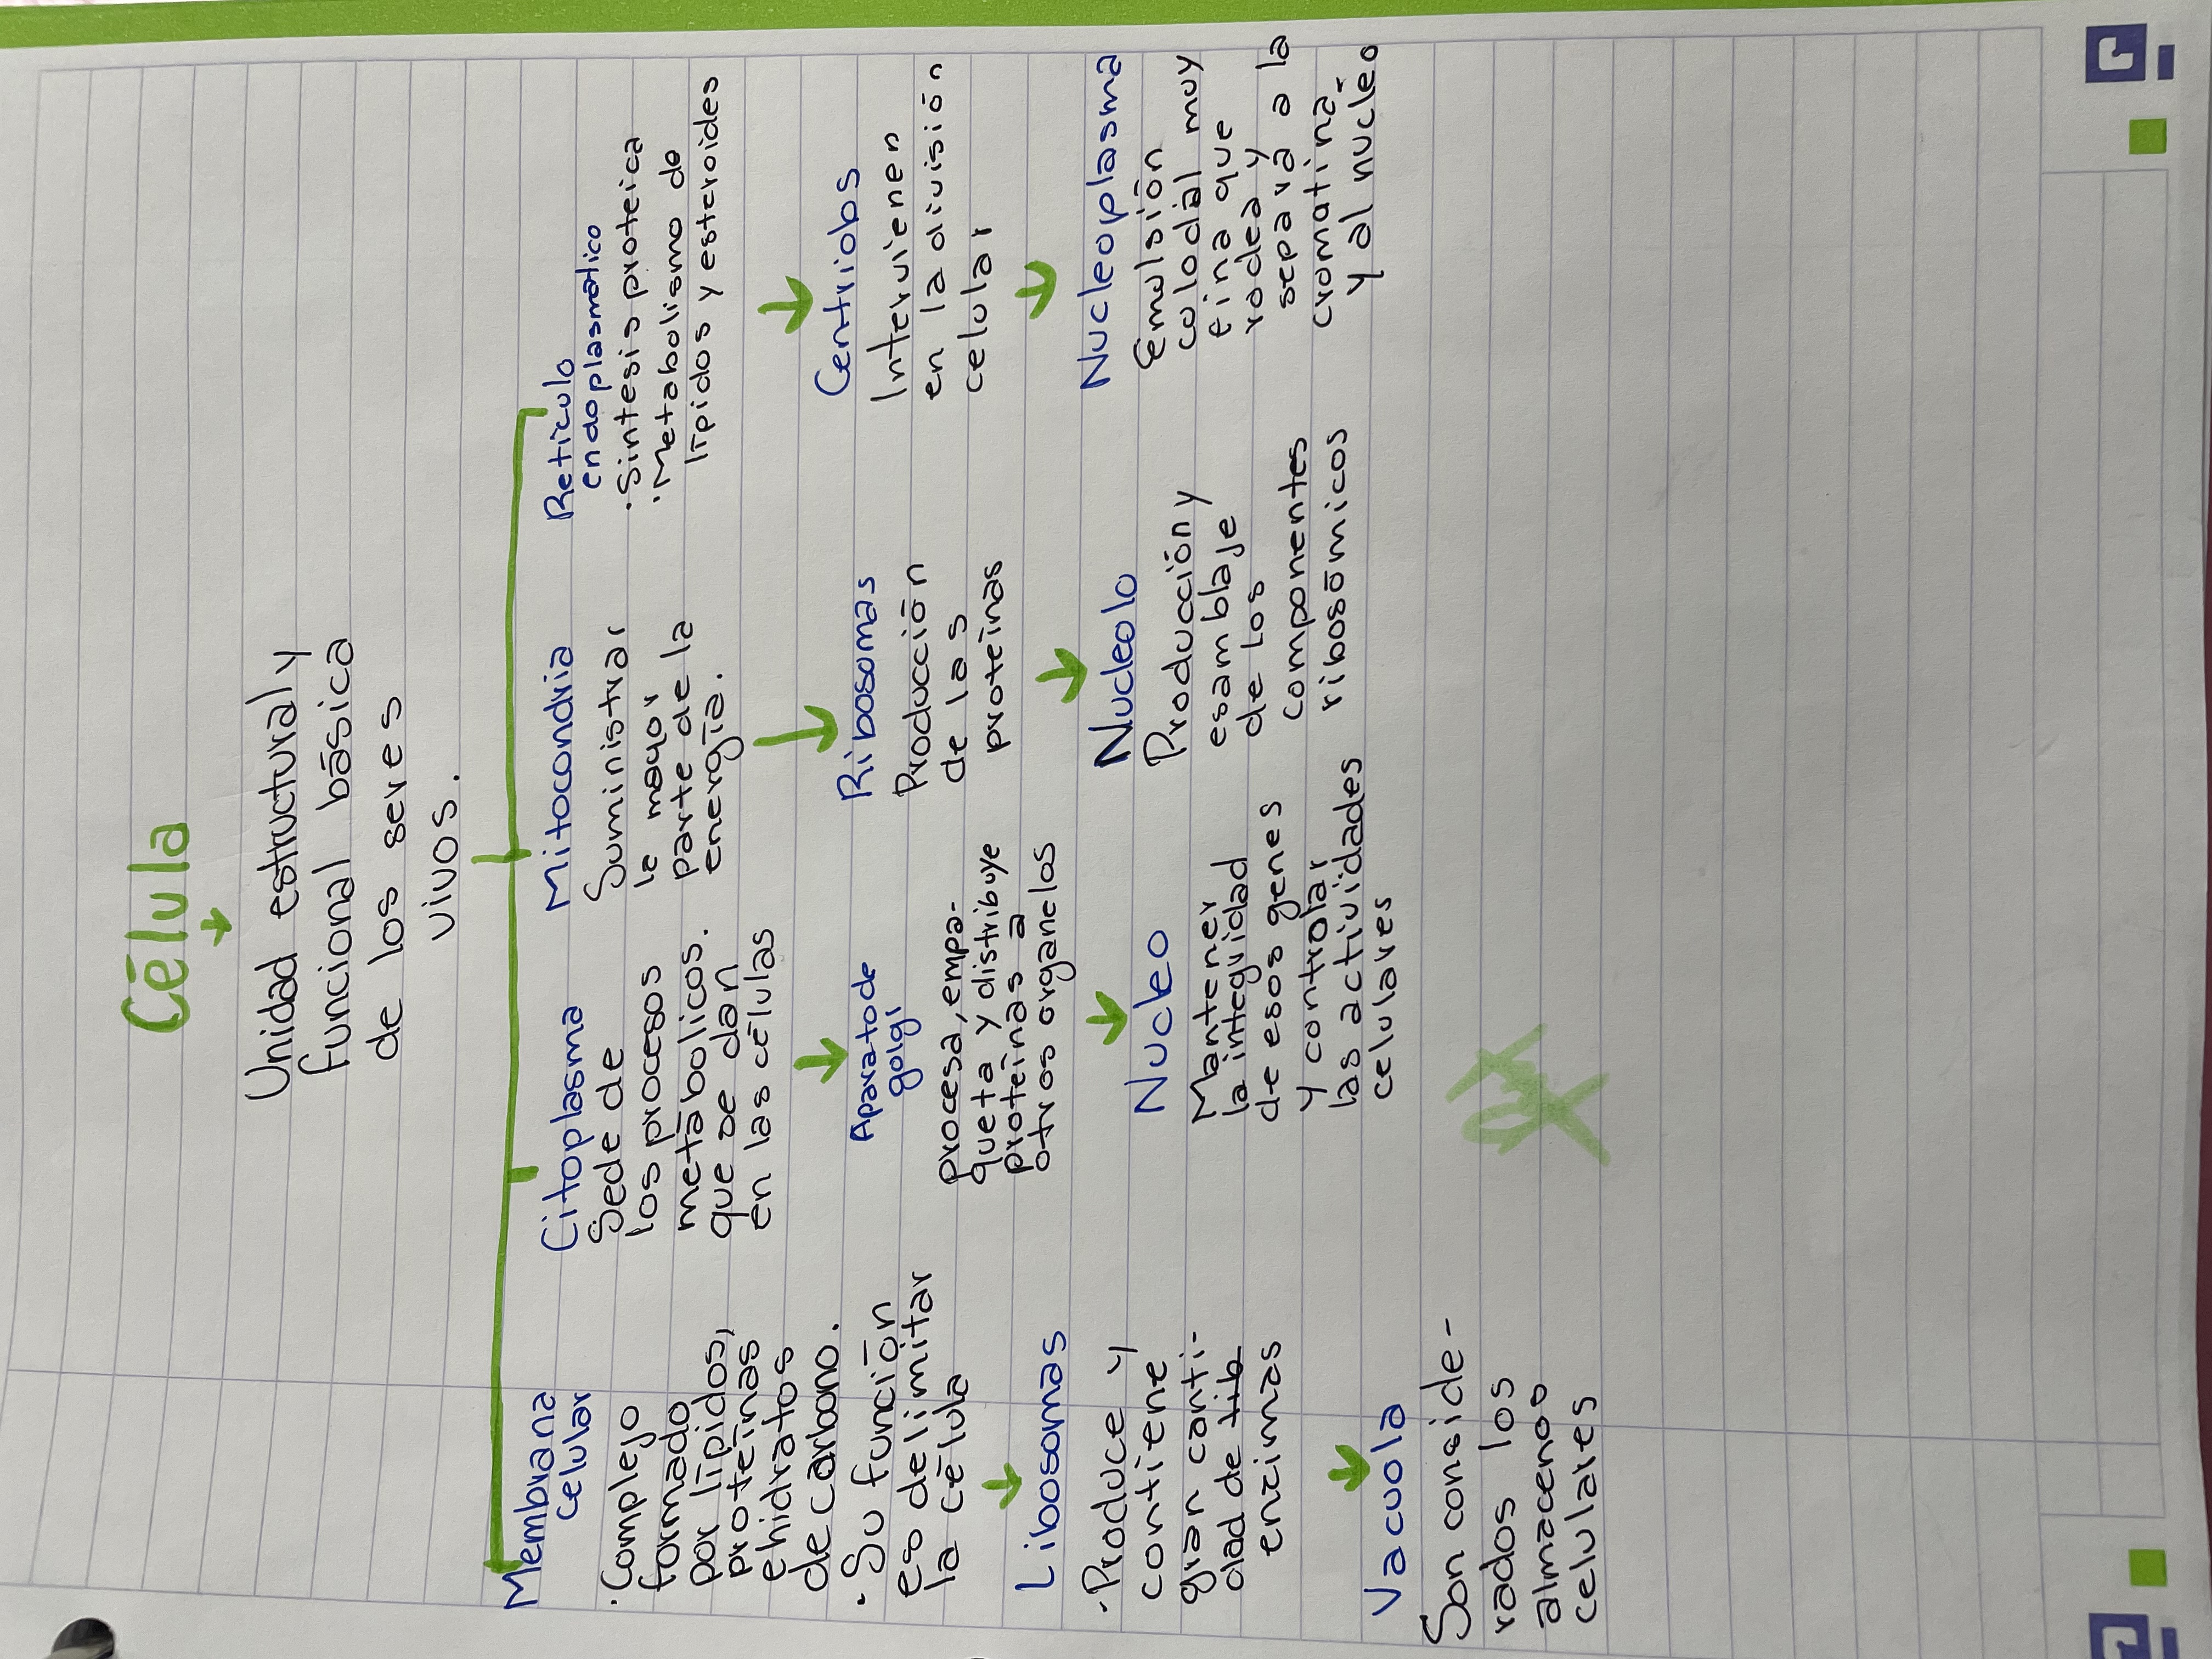 Célula
Unidad estructural y
funcional básica
de los seres
vivos.
Membrana
celular
· Complejo
formado
por lípidos,
proteínas
e hidratos
de carbono.
· Su función
es delimitar
la célula
Libosomas
· Produce y
contiene
gran canti-
dad de tib
encimas
Vacuola
Son conside-
rados los
almacenes
celulares
Citoplasma
Sede de
los procesos
metabolicos.
que se dan
en las células
Aparato de
golgi
procesa, empa-
queta y distribuye
proteínas a
otros organelos
Nucleo
Mantener
la integuidad
de esos genes
y controlar
las actividades
celulares
Mitocondria
Suministrar
la mayor
parte de la
energía.
Ribosomas
Producción
de las
proteínas
Nucleolo
Producción y
esamblaje
de los
componentes
ribosómicos
Retículo
endoplasmático
· Sintesis proteica
· Metabolismo de
lípidos y esteroides
Centriobs
Intervienen
en la división
celular
Nucleoplasma
Emulsión
colodial muy
fina que
rodea y
separa a la
cromatina
y al nucléo